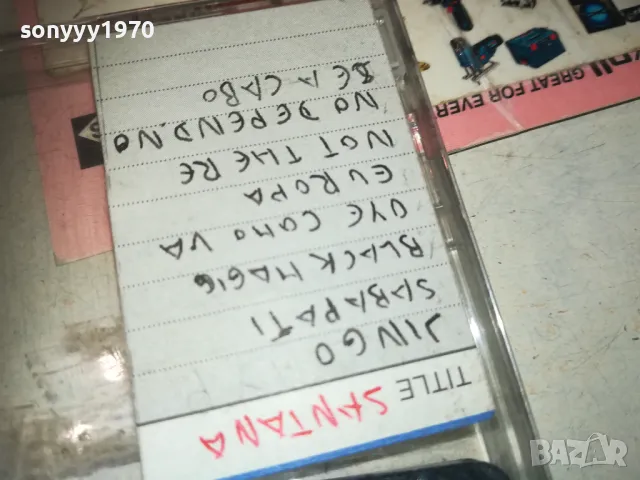 sonyyy1970
TITLE SANTANA
JINGO
SABAPATI
BLACK MAGIG
OYE COMO VA
EUROPA
NOT THERE
NO DEPEND.NO
BE A CABO
GREAT FOR EVER
BAZAR
bg